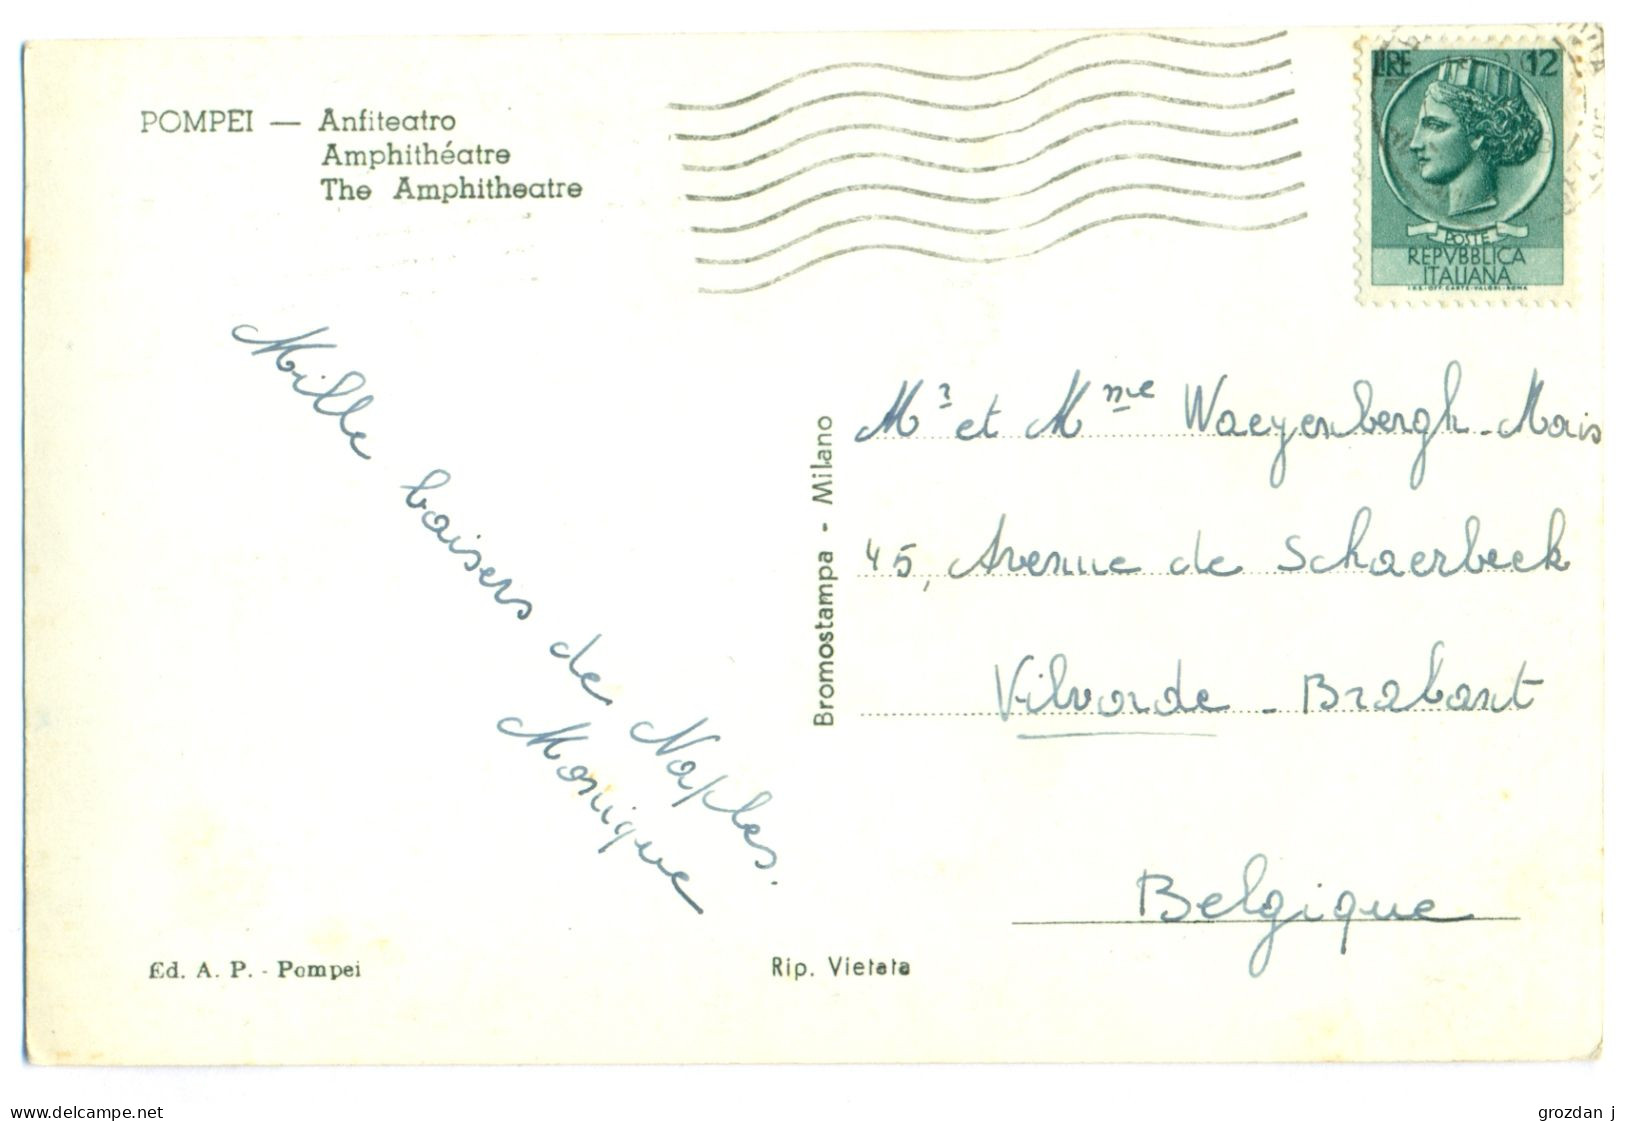 POMPEI — Anfiteatro
Amphithéatre
The Amphitheatre
LIRE 12
POSTE
REPVBBLICA
ITALIANA
I.P.S.-OFF. CARTE-VALORI-ROMA
Mille baisers de Naples.
Monique
Bromostampa - Milano
Mr et Mme Waeyenbergh-Mois
45, Avenue de Schaerbeek
Vilvorde - Brabant
Belgique
Ed. A. P. - Pompei
Rip. Vietata
www.delcampe.net
grozdan j